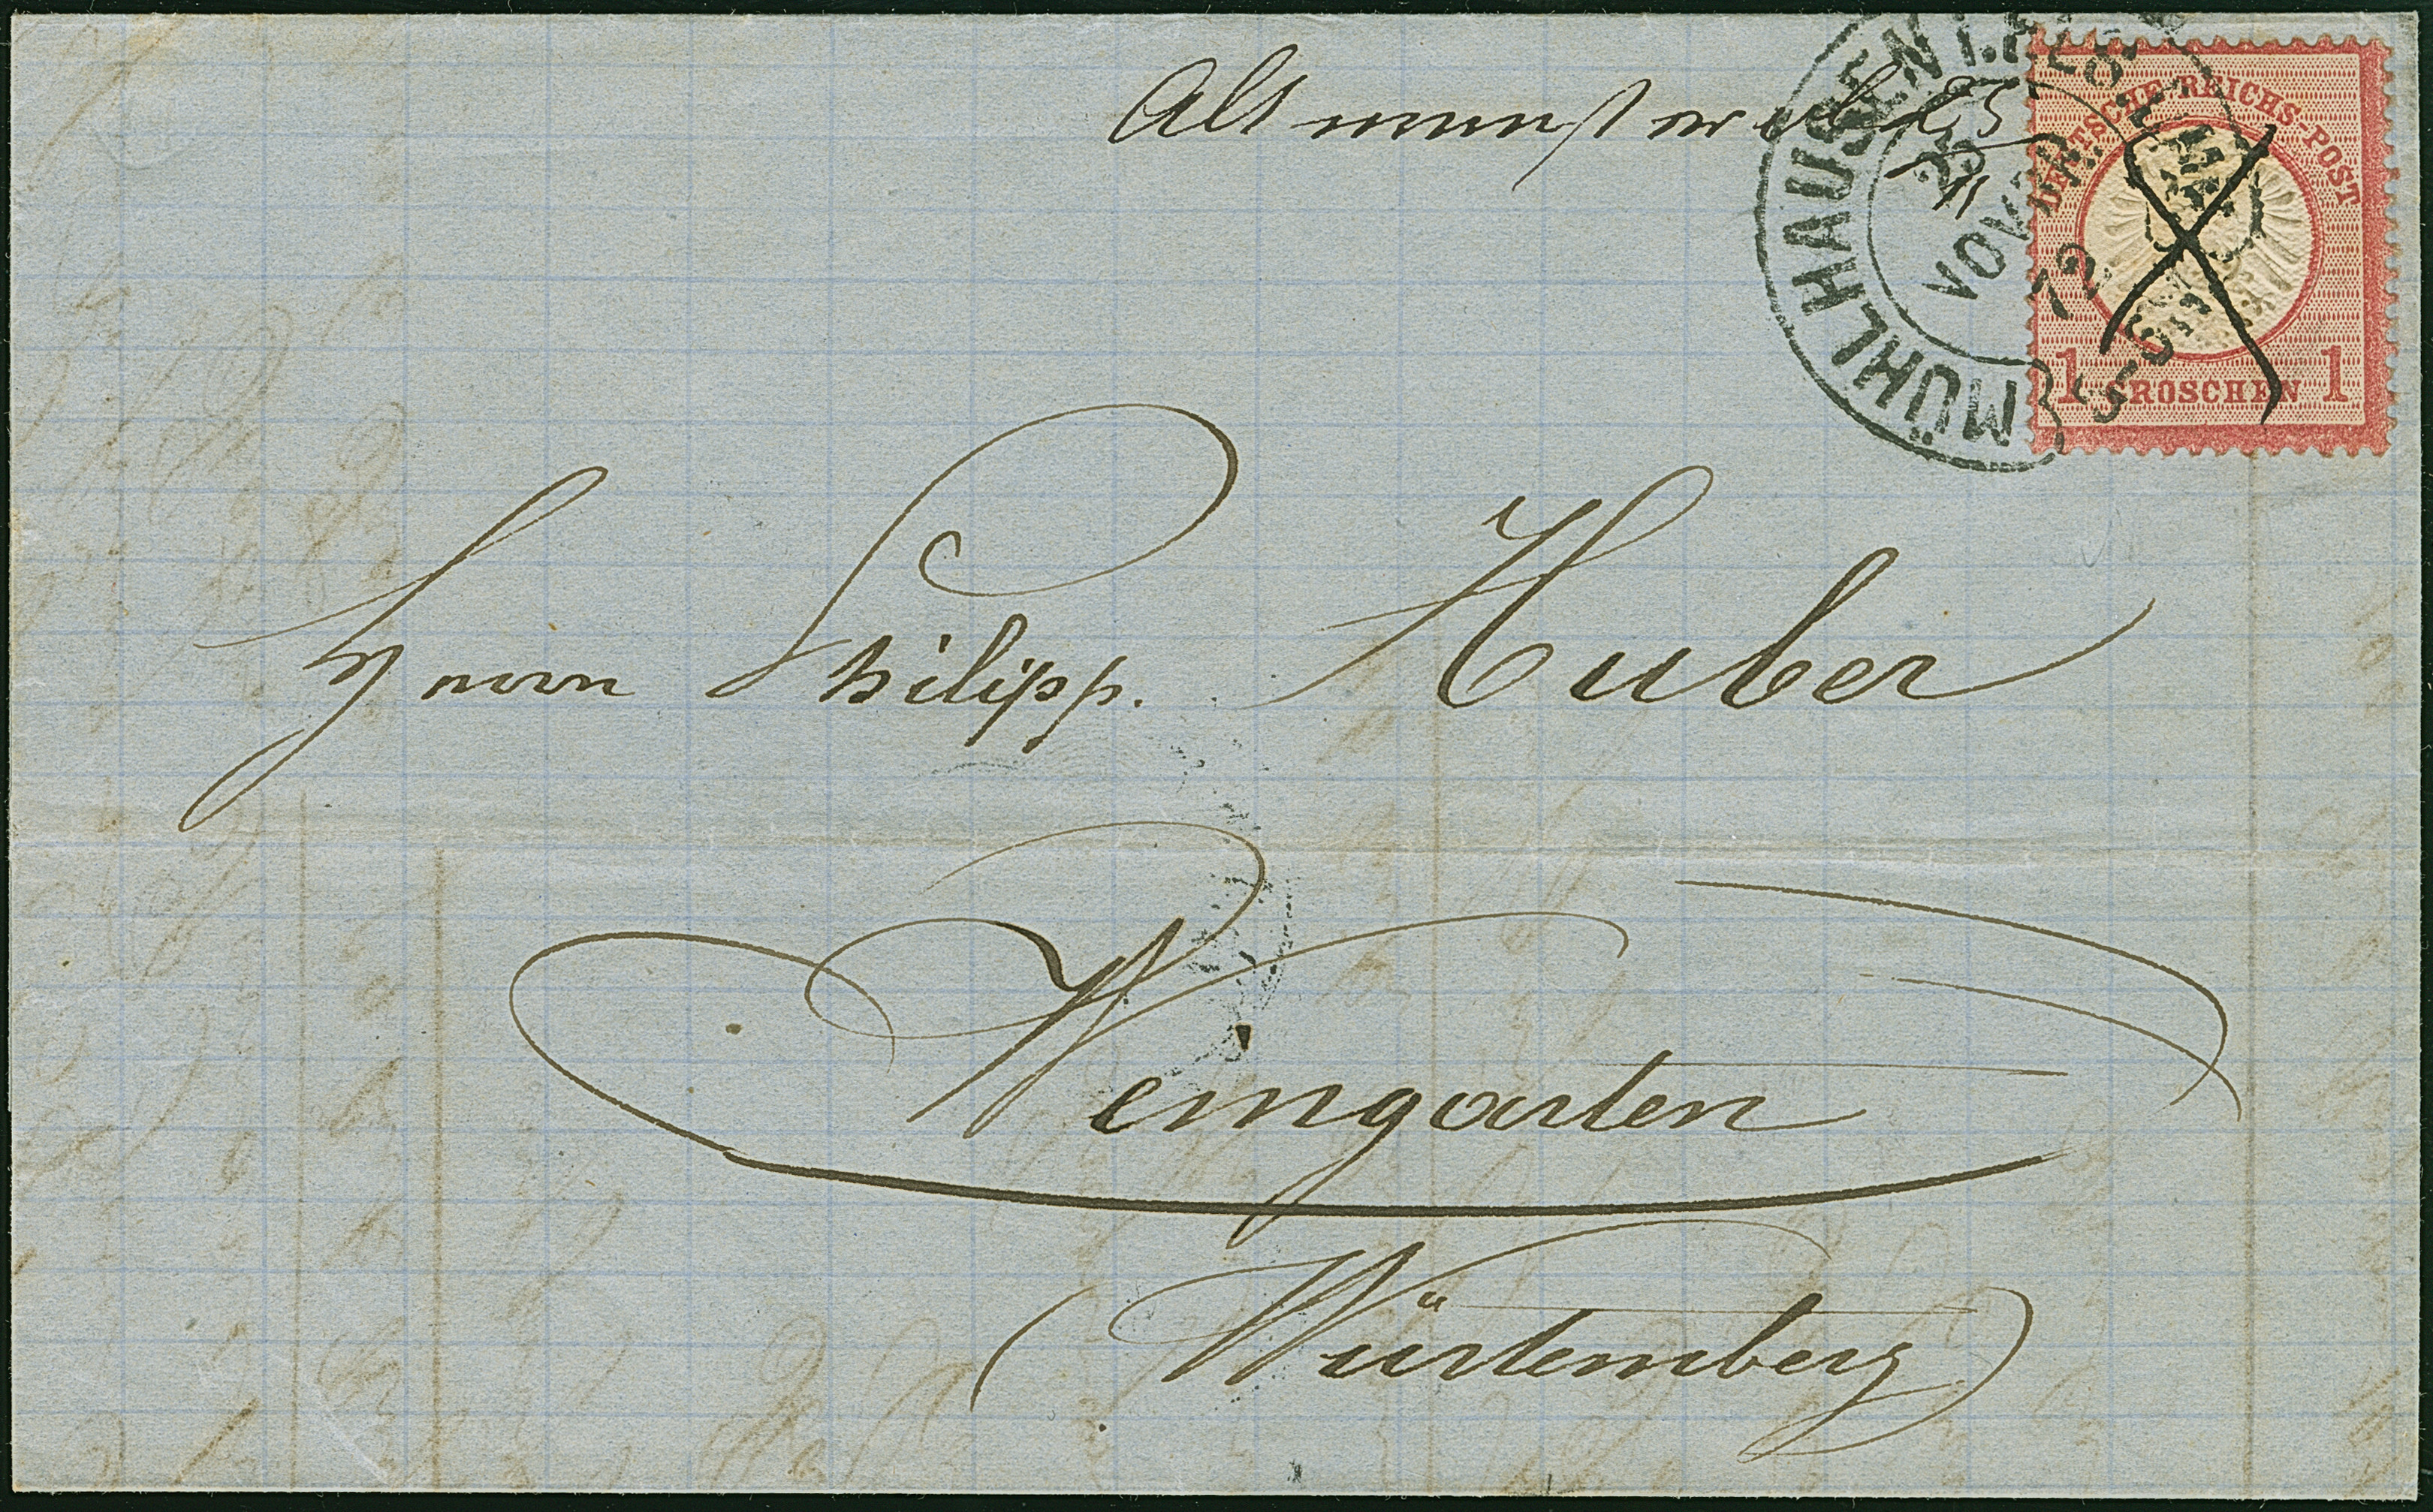 Altmünsterol 25/11
MÜHLHAUSEN I. ELS.
25 NOVBR 72
DEUTSCHE REICHS-POST
1 GROSCHEN 1
Herrn Philipp. Huber
Weingarten
(Würtemberg)